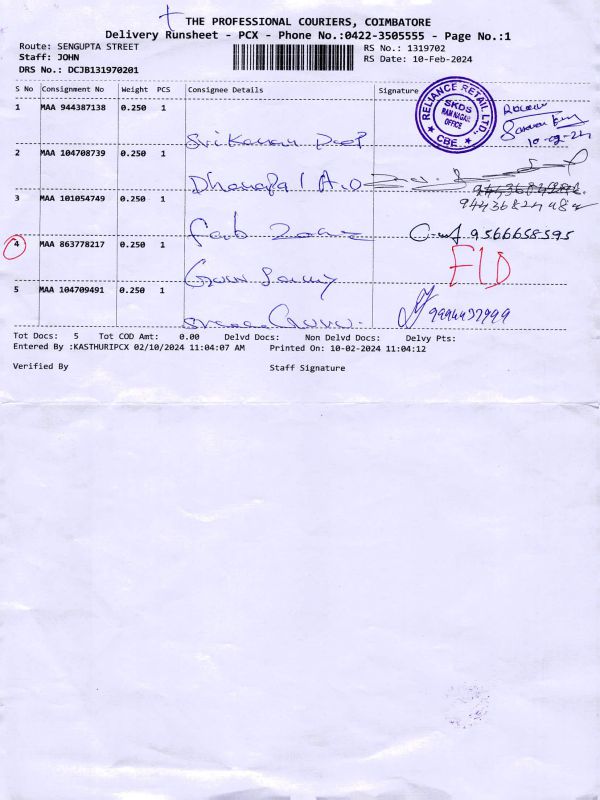 THE PROFESSIONAL COURIERS, COIMBATORE
Delivery Runsheet - PCX - Phone No.:0422-3505555 - Page No.:1
Route: SENGUPTA STREET
RS No.: 1319702
Staff: JOHN
RS Date: 10-Feb-2024
DRS No.: DCJB131970201
S No Consignment No Weight PCS Consignee Details Signature
1 MAA 944387138 0.250 1
RELIANCE RETAIL LTD.
SKDS
RAM NAGAR
OFFICE
CBE
10-02-24
2 MAA 104708739 0.250 1
Dhanapal A.O
9443682498
3 MAA 101054749 0.250 1
Fab
9566658595
4 MAA 863778217 0.250 1
FLD
5 MAA 104709491 0.250 1
Sree Guru
9994437999
Tot Docs: 5 Tot COD Amt: 0.00 Delvd Docs: Non Delvd Docs: Delvy Pts:
Entered By :KASTHURIPCX 02/10/2024 11:04:07 AM Printed On: 10-02-2024 11:04:12
Verified By Staff Signature